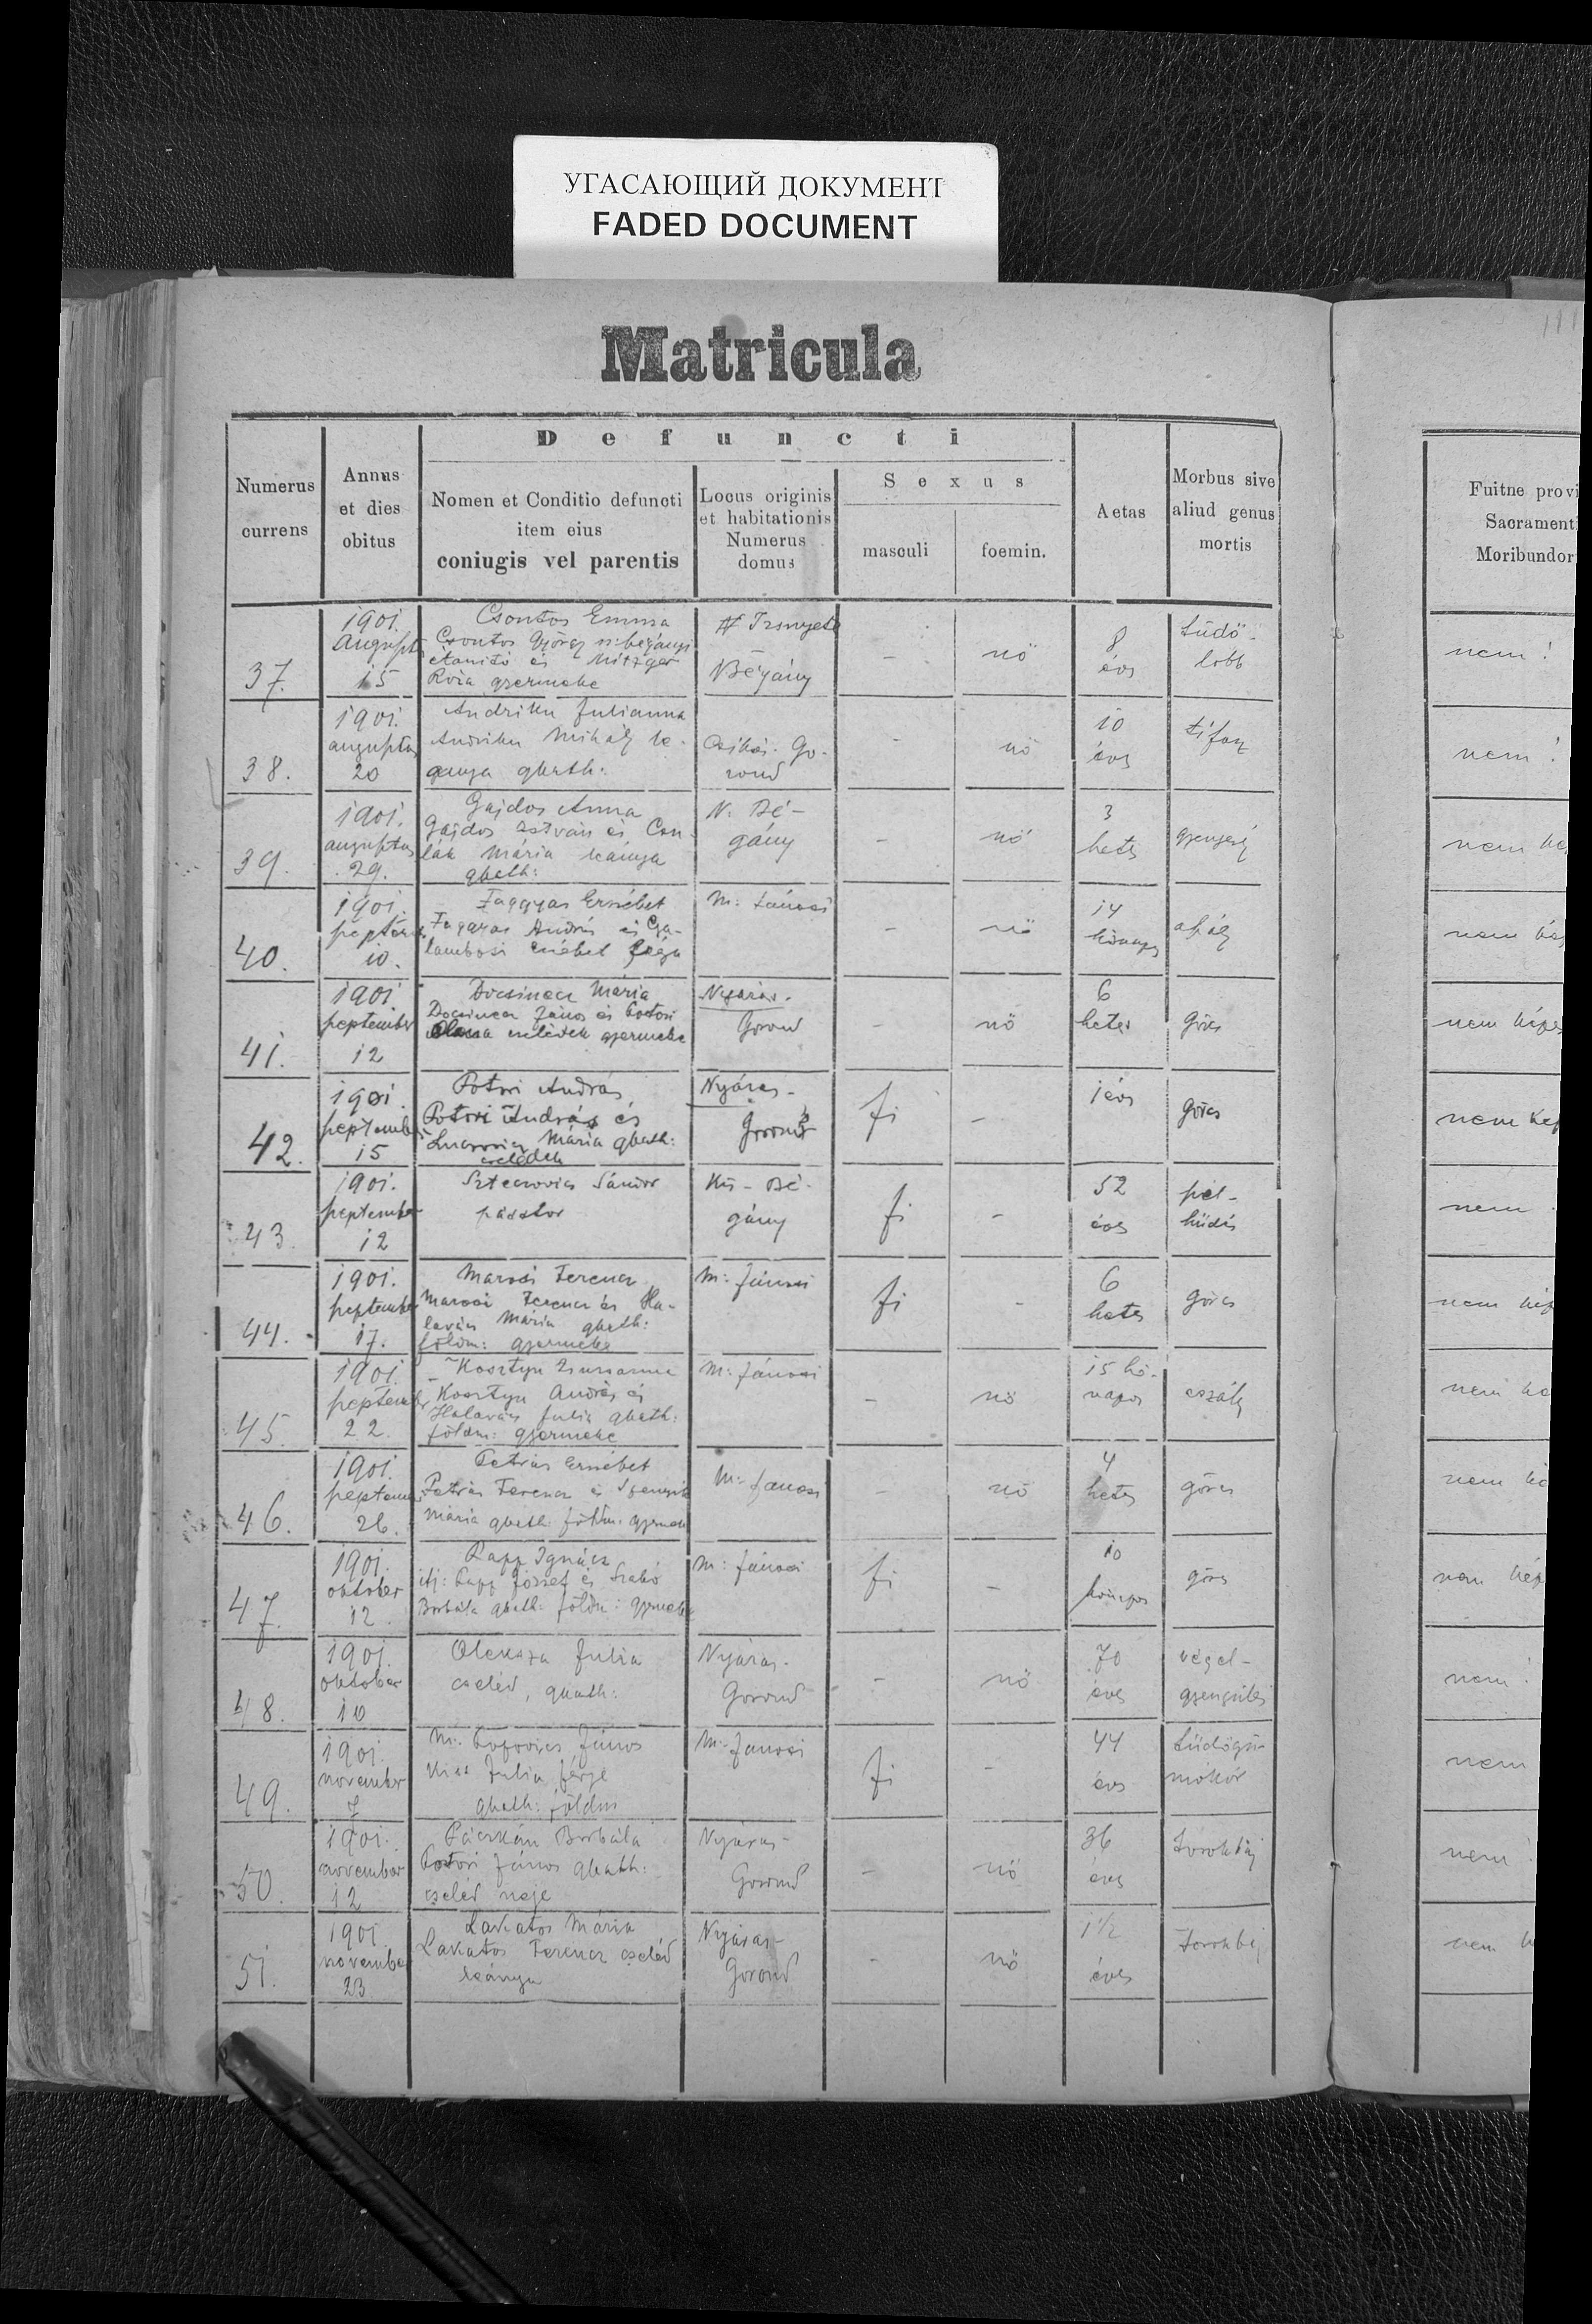 УГАСАЮЩИЙ ДОКУМЕНТ
FADED DOCUMENT
Matricula
Numerus currens
Annus et dies obitus
Defuncti
Nomen et Conditio defuncti
item eius
coniugis vel parentis
Locus originis
et habitationis
Numerus
domus
Sexus
masculi
foemin.
Aetas
Morbus sive
aliud genus
mortis
Fuitne provi
Sacrament
Moribundor
37. 1901. 15
Csontos Emma
Csontos György
gyermeke
Bégány
- nő 8 éves
tüdő-
lobb
nem!
38. 1901. augusztus 20
Andriku Julianna
Andriku Mihály le-
ánya gkath:
Csikós-Go-
rond
- nő 10 éves
nem!
39. 1901. augusztus 29.
Gajdos Anna
Gajdos István és
Mária leánya
gkath:
N. Bé-
gány
- nő 3 hetes
nem
40. 1901. 10.
Faggyas Erzsébet
András és Ga-
lambosi
M: Jánosi
- nő 14
nem
41. 1901. september 12
Mária
János és Potori
cselédek gyermeke
Nyáras-
Gorond
- nő 6 hetes görcs
nem képes
42. 1901. 15
Potori András
Potori András és
Mária gkath:
cselédek
Nyáras-
Gorond
fi - 1 éves görcs
nem kép
43. 1901. september 12
Sándor
pásztor
Kis-Bé-
gány
fi - 52 éves
hüdés
nem
44. 1901. september 17.
Marosi Ferencz
Marosi Ferencz és Ha-
lavács Mária gkath:
földm: gyermeke
M: Jánosi
fi - 6 hetes görcs
nem kép
45. 1901. 22.
Kosztyu Zsuzsanna
Kosztyu András és
Halavács Julia gkath:
földm: gyermeke
M: Jánosi
- nő 15 hó-
napos
nem
46. 1901. 26.
Petrás Erzsébet
Petrás Ferencz és
Mária gkath: földm:
M: Jánosi
- nő 4 hetes görcs
nem
47. 1901. oktober 12
Papp Ignácz
ifj: Papp József és Szabó
Borbála gkath: földm: gyermeke
M: Jánosi
fi - 10 görcs
nem kép
48. 1901. oktober 10
Oleksza Julia
cseléd, gkath:
Nyáras-
Gorond
- nő 70 éves
végel-
gyengülés
nem!
49. 1901. november 7
M: Popovics János
Kiss Julia férje
gkath: földm
M: Jánosi
fi - 44 éves
tüdőgü-
mőkór
nem
50. 1901. november 12
Borbála
Potori János gkath:
cseléd neje
Nyáras-
Gorond
- nő 36 éves torokbaj
nem
51. 1901. november 23
Lakatos Mária
Lakatos Ferencz cseléd
leánya
Nyáras-
Gorond
- nő 1 1/2 éves torokbaj
nem